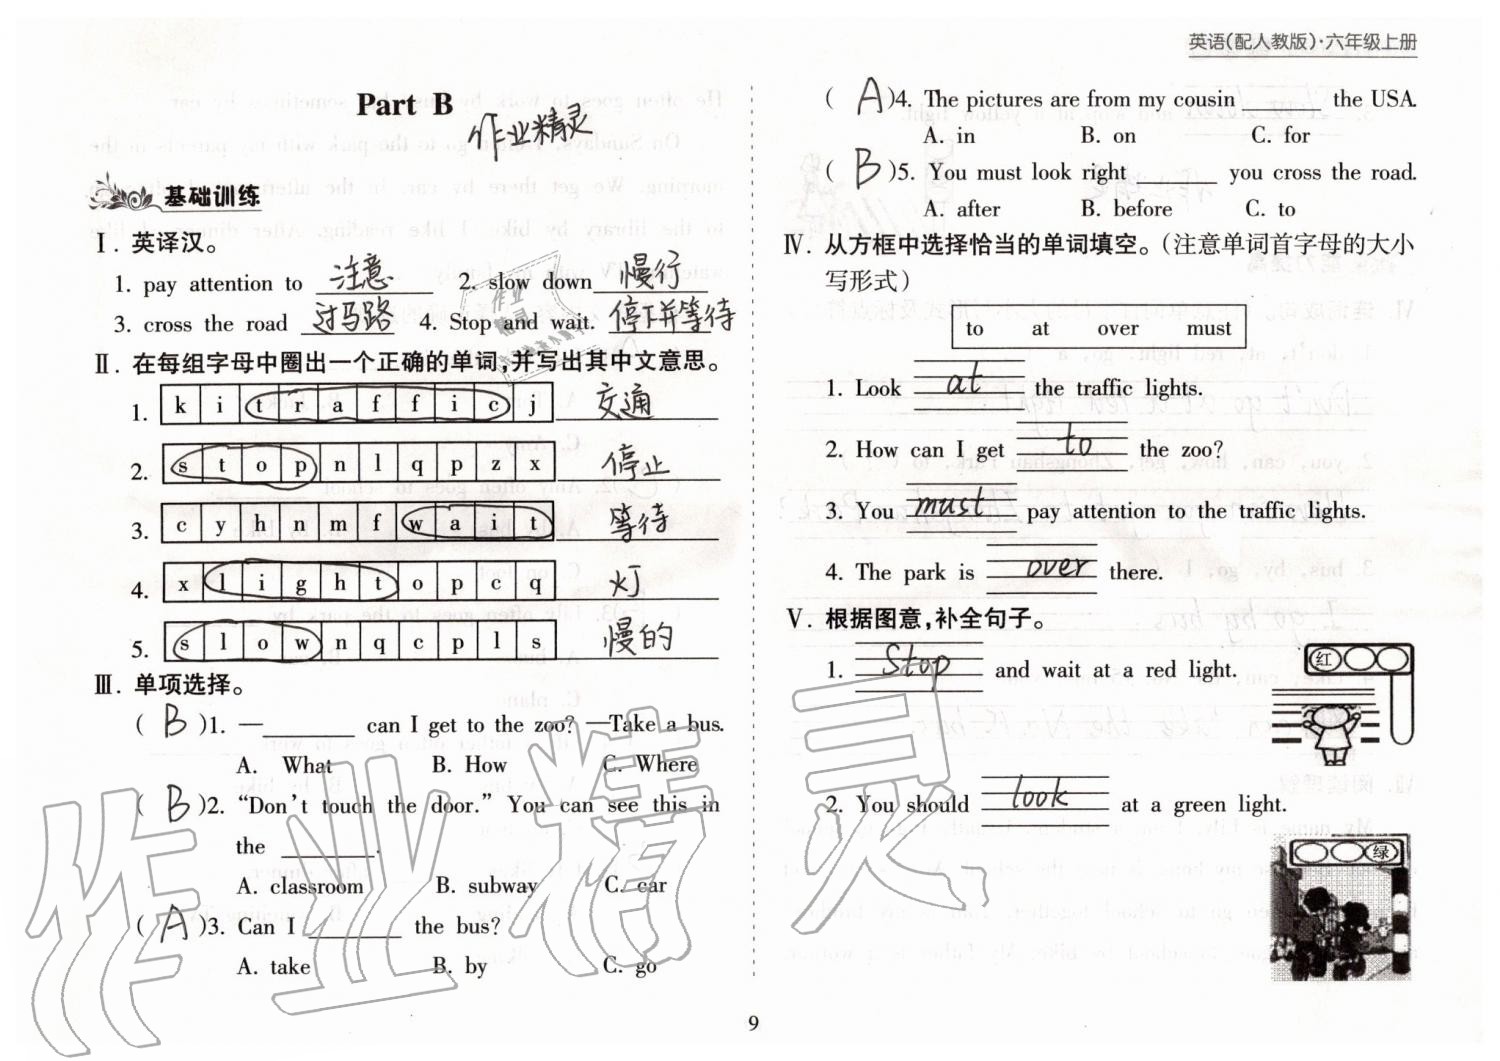 英语(配人教版)·六年级上册
Part B
作业精灵
基础训练
Ⅰ. 英译汉。
1. pay attention to 注意 2. slow down 慢行
3. cross the road 过马路 4. Stop and wait. 停下并等待
Ⅱ. 在每组字母中圈出一个正确的单词,并写出其中文意思。
1. k i t r a f f i c j 交通
2. s t o p n l q p z x 停止
3. c y h n m f w a i t 等待
4. x l i g h t o p c q 灯
5. s l o w n q c p l s 慢的
Ⅲ. 单项选择。
( B )1. — ________ can I get to the zoo? —Take a bus.
A. What B. How C. Where
( B )2. “Don’t touch the door.” You can see this in
the ________.
A. classroom B. subway C. car
( A )3. Can I ________ the bus?
A. take B. by C. go
( A )4. The pictures are from my cousin ________ the USA.
A. in B. on C. for
( B )5. You must look right ________ you cross the road.
A. after B. before C. to
Ⅳ. 从方框中选择恰当的单词填空。(注意单词首字母的大小
写形式)
to at over must
1. Look at the traffic lights.
2. How can I get to the zoo?
3. You must pay attention to the traffic lights.
4. The park is over there.
Ⅴ. 根据图意,补全句子。
1. Stop and wait at a red light.
红
2. You should look at a green light.
绿
作业精灵
9